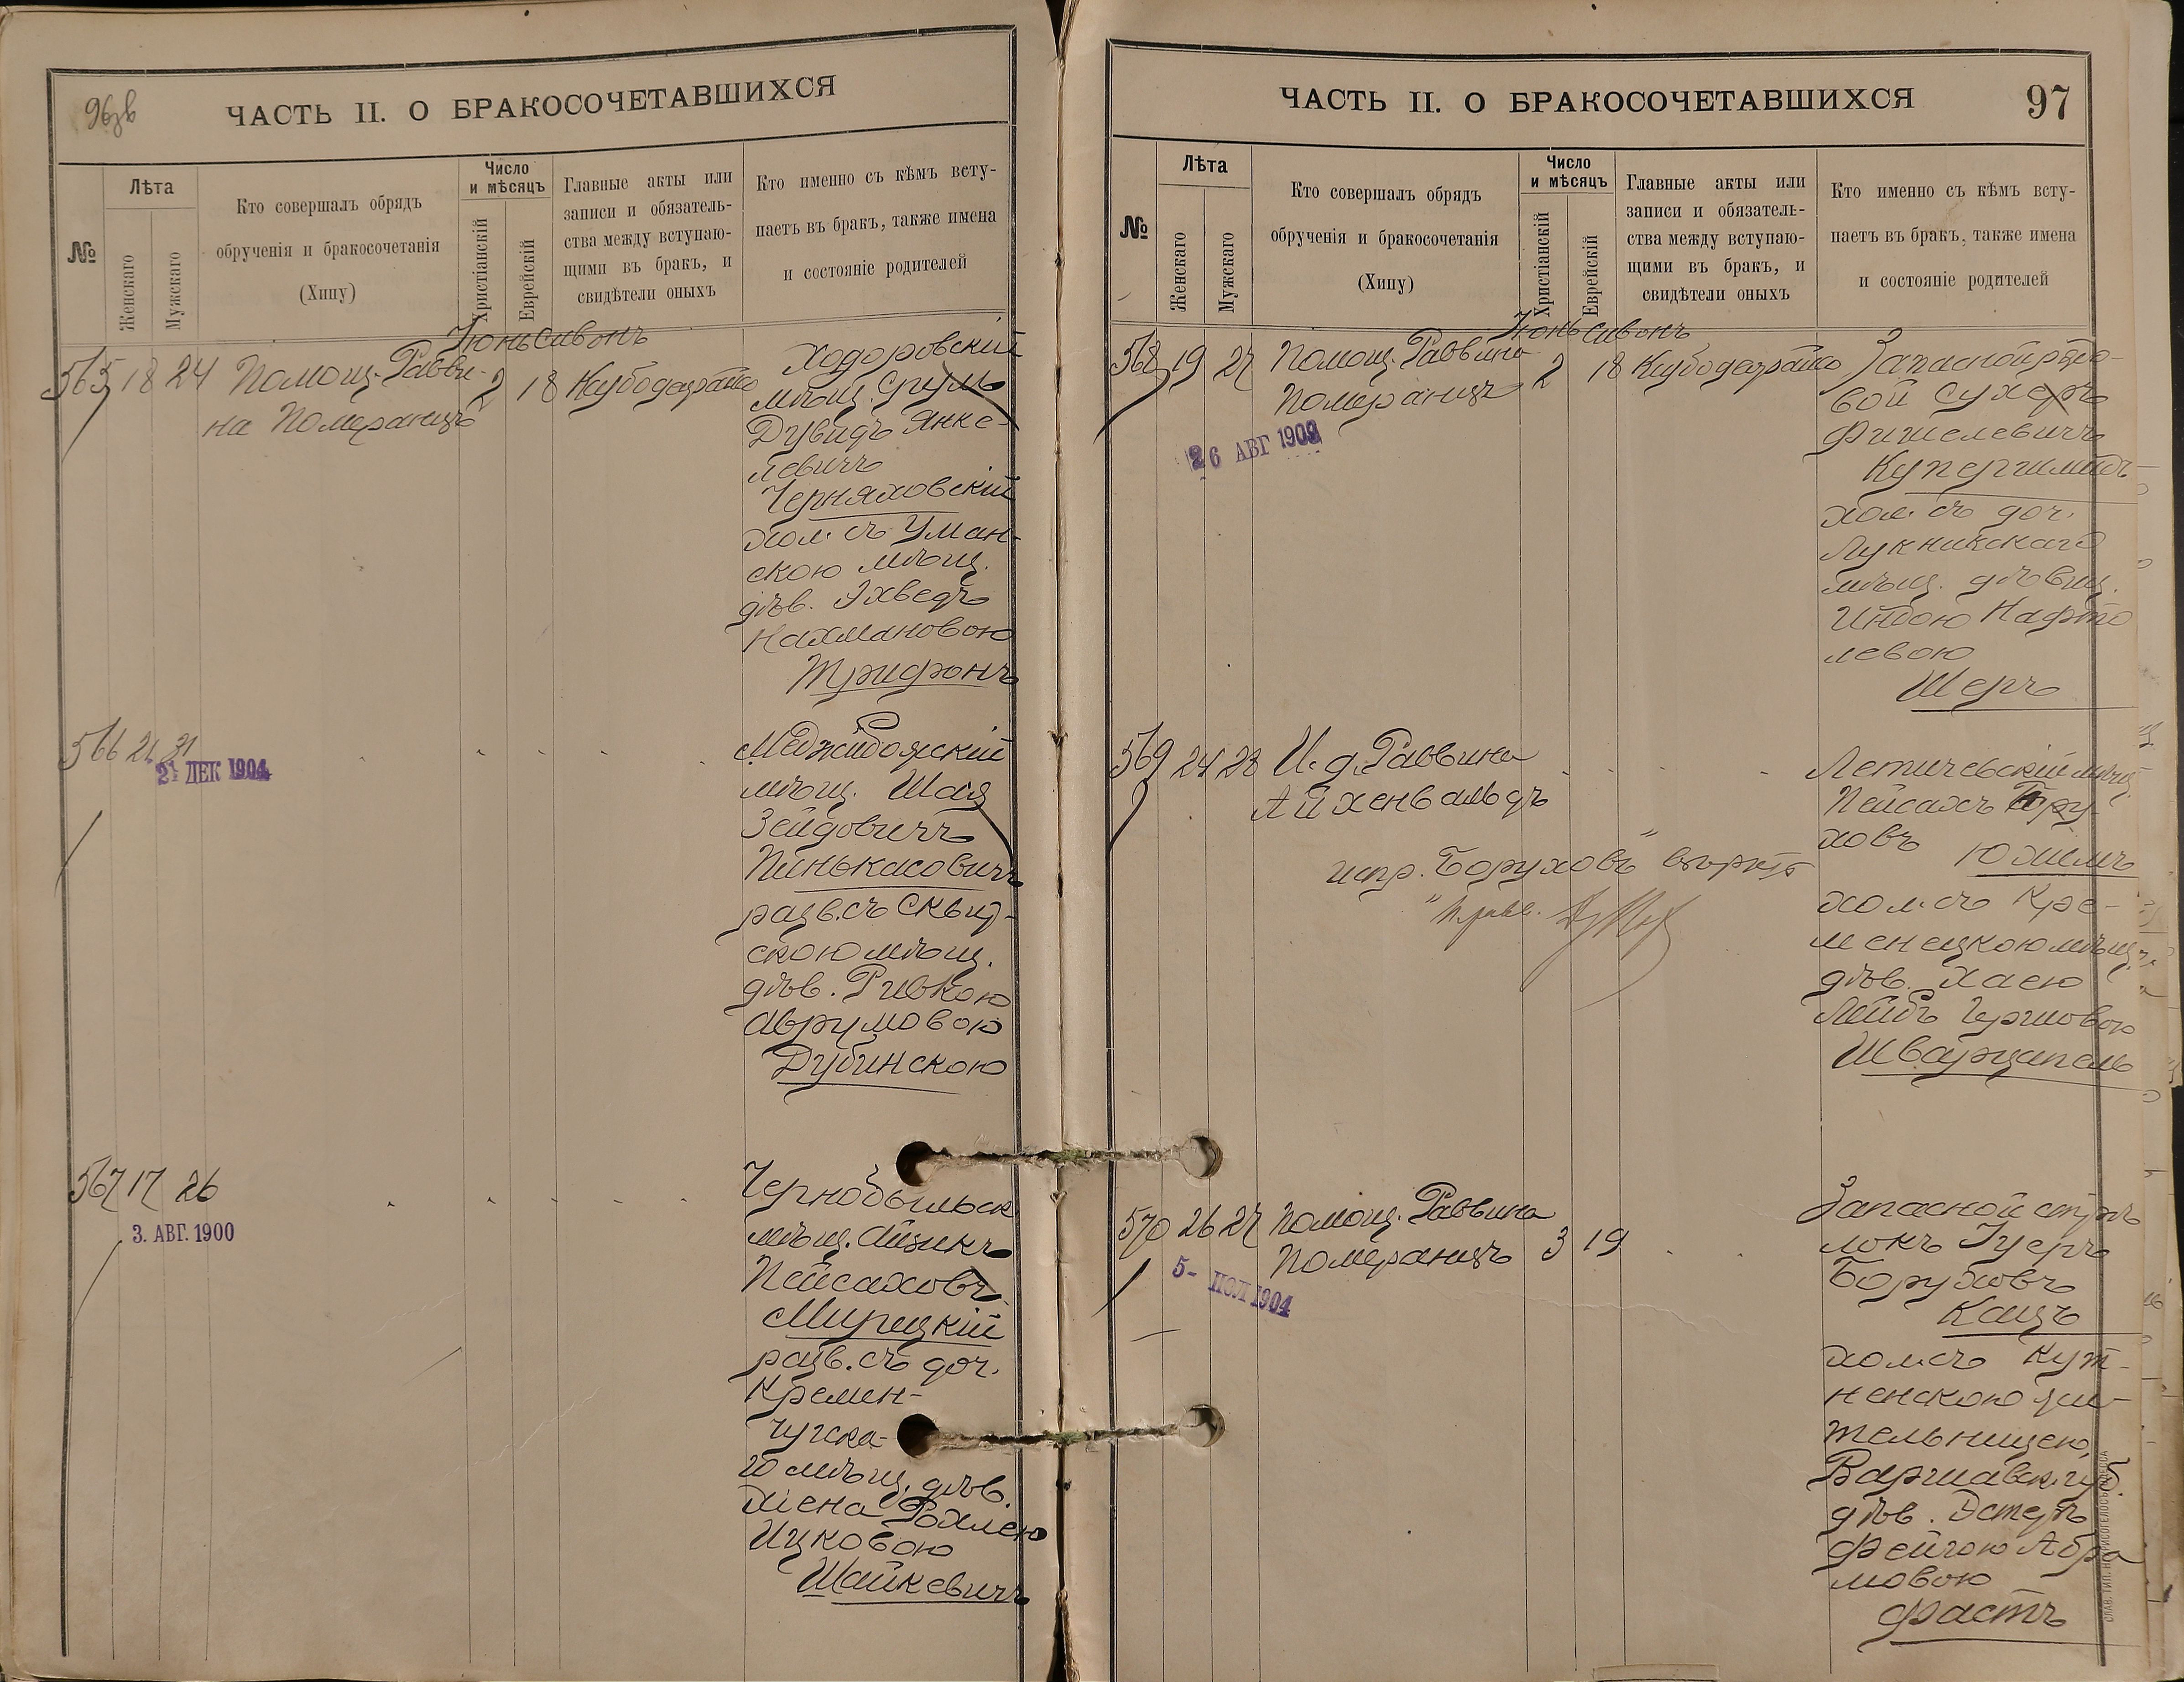 96 об
ЧАСТЬ II. О БРАКОСОЧЕТАВШИХСЯ
№
Лѣта
Женскаго
Мужскаго
Кто совершалъ обрядъ
обрученія и бракосочетанія
(Хипу)
Число
и мѣсяцъ
Христіанскій
Еврейскій
Главные акты или
записи и обязатель-
ства между вступаю-
щими въ бракъ, и
свидѣтели оныхъ
Кто именно съ кѣмъ всту-
паетъ въ бракъ, также имена
и состояніе родителей
Іюнь Сивонъ
565 18 24 Помощ. Равви-
на Померанцъ
2 18
Ходоровскій
мѣщ. Сруль
Дувидъ Янке-
левичъ
Черняховскій
хол. съ Уман-
скою мѣщ.
дѣв. Эхведъ
Нахмановою
Трифонъ
566 21 31
21 ДЕК 1904
Меджибожскій
мѣщ. Шая
Зейдовичъ
Пинькасовичъ
разв. съ Сквир-
скою мѣщ.
дѣв. Ривкою
Аврумовою
Дубинскою
567 17 26
3. АВГ. 1900
Чернобыльск
мѣщ. Айзикъ
Пейсаховъ
Мирецкій
разв. съ доч.
Кремен-
чугска-
го мѣщ. дѣв.
Хіена Рохлею
Ицковою
Шайкевичъ
ЧАСТЬ II. О БРАКОСОЧЕТАВШИХСЯ
97
№
Лѣта
Женскаго
Мужскаго
Кто совершалъ обрядъ
обрученія и бракосочетанія
(Хипу)
Число
и мѣсяцъ
Христіанскій
Еврейскій
Главные акты или
записи и обязатель-
ства между вступаю-
щими въ бракъ, и
свидѣтели оныхъ
Кто именно съ кѣмъ всту-
паетъ въ бракъ, также имена
и состояніе родителей
Іюнь Сивонъ
568 19 27 Помощ. Раввина
Померанцъ
2 18
26 АВГ 1902
Запасной рядо-
вой Сухеръ
Фишелевичъ
Купершмидъ
хол. съ доч.
Лукникскаго
мѣщ. дѣвиц.
Индою Нафто
левою
Шеръ
569 24 28 И. д. Раввина
Айхенвальдъ
испр. "Боруховъ" вѣрить
Летичевскій мѣщ.
Пейсахъ Бору
ховъ
Юхимъ
хол. съ Кре-
менецкою мѣщ.
дѣв. Хаею
Лейбъ Гершовою
Шварцапель
570 26 27 Помощ. Раввина
Померанцъ
3 19
5- ІЮЛ 1904
Запасной стрѣ
локъ Гуеръ
Боруховъ
Кацъ
хол. съ Кут-
ненскою жи-
тельницею
Варшавск. губ.
дѣв. Эстеръ
Фейгою Абра
мовою
Фастъ